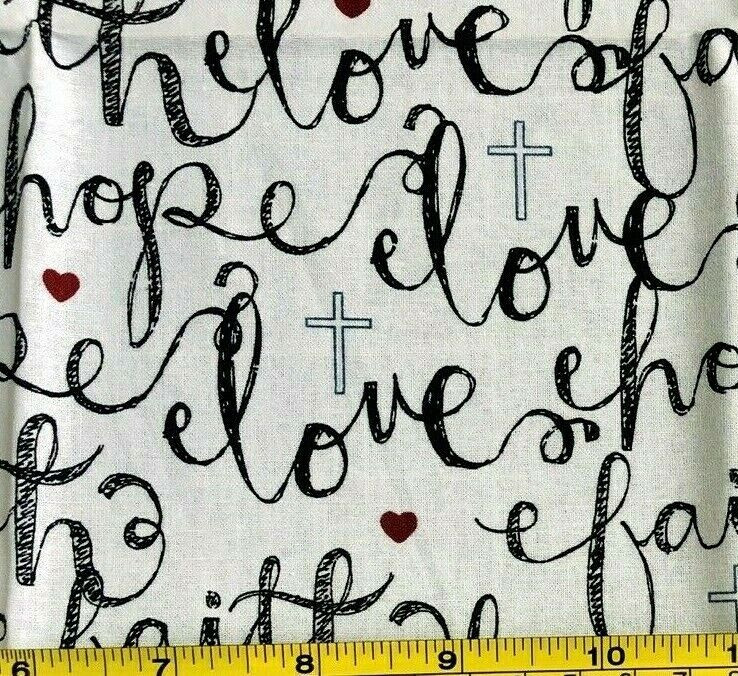 love
hope
love
love
ho
fai
faith
6 7 8 9 10 1